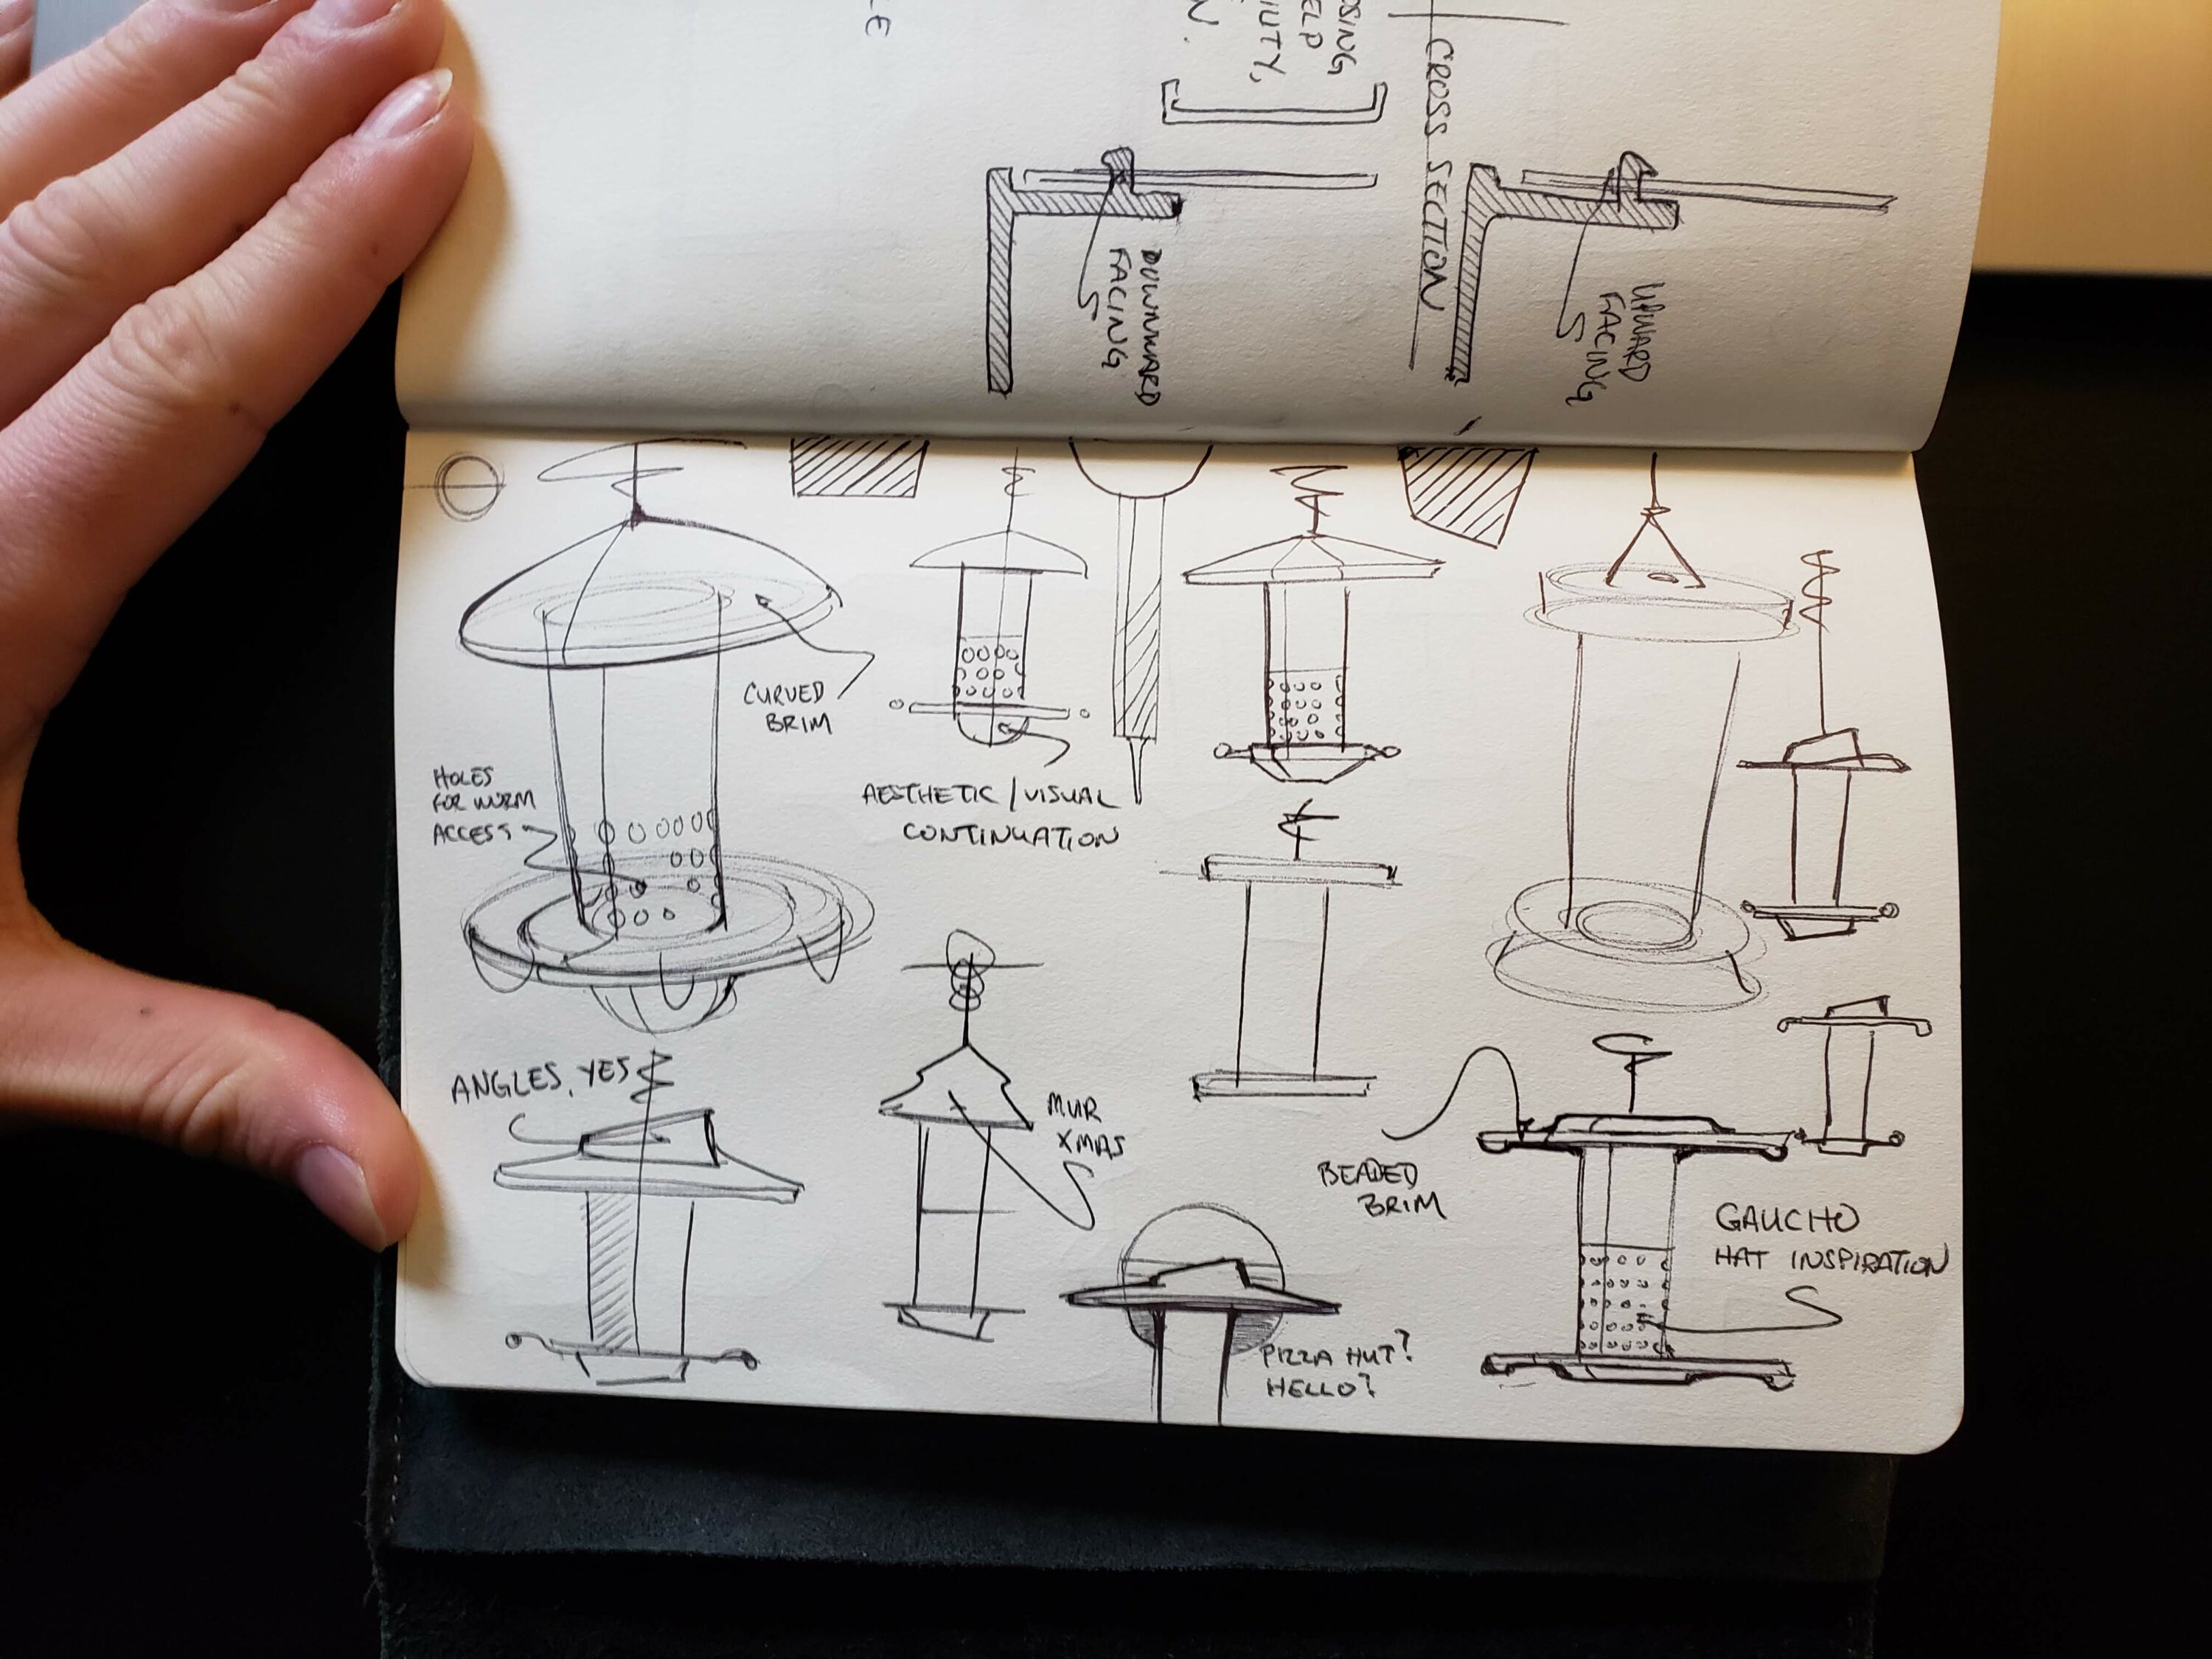 LE
OSING
ELP
IUTY,
N.
CROSS SECTION
DOWNWARD
FACING
UPWARD
FACING
CURVED
BRIM
HOLES
FOR WORM
ACCESS
AESTHETIC/VISUAL
CONTINUATION
ANGLES, YES
MUR
XMAS
BEADED
BRIM
GAUCHO
HAT INSPIRATION
PIZZA HUT?
HELLO?